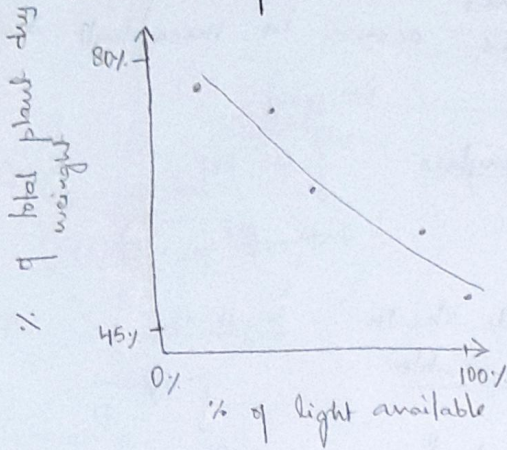 % of total plant dry
weight
80%
45%
0%
100%
% of light available